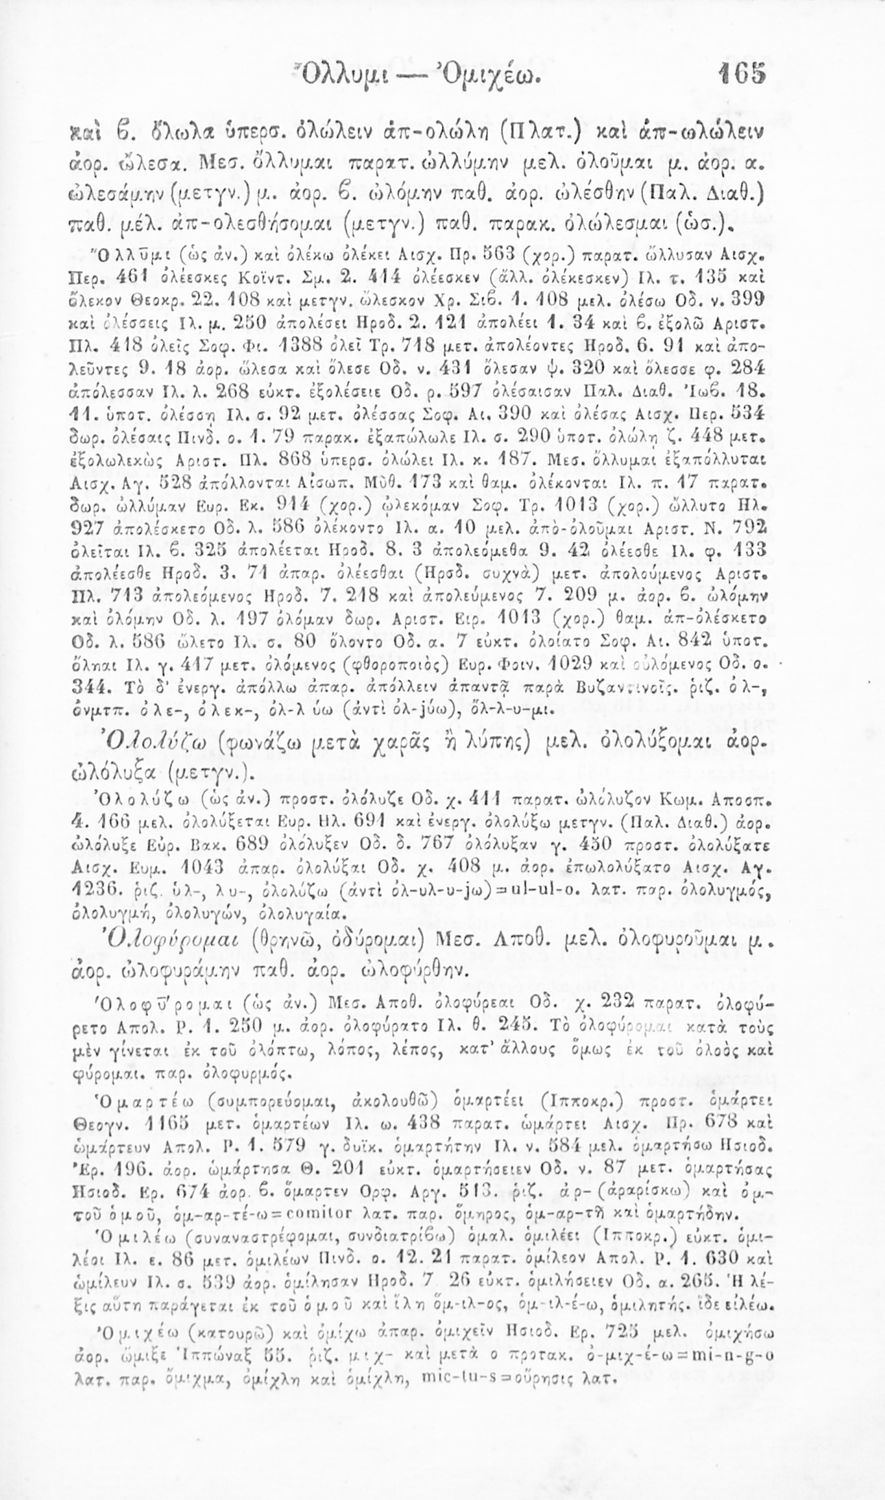 Ὄλλυμι — Ὀμιχέω. 165
καὶ β. ὄλωλα ὑπερσ. ὀλώλειν ἀπ-ολώλη (Πλατ.) καὶ ἀπ-ωλώλειν
ἀορ. ὤλεσα. Μεσ. ὄλλυμαι παρατ. ὠλλύμην μελ. ὀλοῦμαι μ. ἀορ. α.
ὠλεσάμην (μετγν.) μ. ἀορ. β. ὠλόμην παθ. ἀορ. ὠλέσθην (Παλ. Διαθ.)
παθ. μέλ. ἀπ-ολεσθήσομαι (μετγν.) παθ. παρακ. ὀλώλεσμαι (ὡσ.).
Ὄλλῡμι (ὡς ἀν.) καὶ ὀλέκω ὀλέκει Αισχ. Πρ. 563 (χορ.) παρατ. ὤλλυσαν Αισχ.
Περ. 461 ὀλέεσκες Κοΐντ. Σμ. 2. 414 ὀλέεσκεν (ἄλλ. ὀλέκεσκεν) Ιλ. τ. 135 καὶ
ὄλεκον Θεοκρ. 22. 108 καὶ μετγν. ὤλεσκον Χρ. Σιβ. 1. 108 μελ. ὀλέσω Οδ. ν. 399
καὶ ὀλέσσεις Ιλ. μ. 250 ἀπολέσει Ηροδ. 2. 121 ἀπολέει 1. 34 καὶ β. ἐξολῶ Αριστ.
Πλ. 418 ὀλεῖς Σοφ. Φι. 1388 ὀλεῖ Τρ. 718 μετ. ἀπολέοντες Ηροδ. 6. 91 καὶ ἀπο-
λεῦντες 9. 18 ἀορ. ὤλεσα καὶ ὄλεσε Οδ. ν. 431 ὄλεσαν ψ. 320 καὶ ὄλεσσε φ. 284
ἀπόλεσσαν Ιλ. λ. 268 εὐκτ. ἐξολέσειε Οδ. ρ. 597 ὀλέσαισαν Παλ. Διαθ. Ἰωβ. 18.
11. ὑποτ. ὀλέσσῃ Ιλ. σ. 92 μετ. ὀλέσσας Σοφ. Αι. 390 καὶ ὀλέσας Αισχ. Περ. 534
δωρ. ὀλέσαις Πινδ. ο. 1. 79 παρακ. ἐξαπώλωλε Ιλ. σ. 290 ὑποτ. ὀλώλῃ ζ. 448 μετ.
ἐξολωλεκὼς Αριστ. Πλ. 868 ὑπερσ. ὀλώλει Ιλ. κ. 187. Μεσ. ὄλλυμαι ἐξαπόλλυται
Αισχ. Αγ. 528 ἀπόλλονται Αἰσωπ. Μῦθ. 173 καὶ θαμ. ὀλέκονται Ιλ. π. 17 παρατ.
δωρ. ὠλλύμαν Ευρ. Εκ. 914 (χορ.) ὠλεκόμαν Σοφ. Τρ. 1013 (χορ.) ὤλλυτο Ηλ.
927 ἀπολέσκετο Οδ. λ. 586 ὀλέκοντο Ιλ. α. 10 μελ. ἀπὸ-ὀλοῦμαι Αριστ. Ν. 792
ὀλεῖται Ιλ. β. 325 ἀπολέεται Ηροδ. 8. 3 ἀπολεόμεθα 9. 42 ὀλέεσθε Ιλ. φ. 133
ἀπολέεσθε Ηροδ. 3. 71 ἀπαρ. ὀλέεσθαι (Ηροδ. συχνὰ) μετ. ἀπολούμενος Αριστ.
Πλ. 713 ἀπολεόμενος Ηροδ. 7. 218 καὶ ἀπολεύμενος 7. 209 μ. ἀορ. β. ὠλόμην
καὶ ὀλόμην Οδ. λ. 197 ὀλόμαν δωρ. Αριστ. Ειρ. 1013 (χορ.) θαμ. ἀπ-ὀλέσκετο
Οδ. λ. 586 ὤλετο Ιλ. σ. 80 ὄλοντο Οδ. α. 7 εὐκτ. ὀλοίατο Σοφ. Αι. 842 ὑποτ.
ὄληαι Ιλ. γ. 417 μετ. ὀλόμενος (φθοροποιὸς) Ευρ. Φοιν. 1029 καὶ οὐλόμενος Οδ. ο.
344. Τὸ δ' ἐνεργ. ἀπόλλω ἀπαρ. ἀπόλλειν ἀπαντᾷ παρὰ Βυζαντινοῖς. ῥιζ. ὀλ-,
ὀνμτπ. ὀλε-, ὀλεκ-, ὀλ-λύω (ἀντὶ ὀλ-jύω), ὄλ-λ-υ-μι.
Ὀλολύζω (φωνάζω μετὰ χαρᾶς ἢ λύπης) μελ. ὀλολύξομαι ἀορ.
ὠλόλυξα (μετγν.).
Ὀλολύζω (ὡς ἀν.) προστ. ὀλόλυζε Οδ. χ. 411 παρατ. ὠλόλυζον Κωμ. Αποσπ.
4. 166 μελ. ὀλολύξεται Ευρ. Ηλ. 691 καὶ ἐνεργ. ὀλολύξω μετγν. (Παλ. Διαθ.) ἀορ.
ὠλόλυξε Εὐρ. Βακ. 689 ὀλόλυξεν Οδ. δ. 767 ὀλόλυξαν γ. 450 προστ. ὀλολύξατε
Αισχ. Ευμ. 1043 ἀπαρ. ὀλολύξαι Οδ. χ. 408 μ. ἀορ. ἐπωλολύξατο Αισχ. Αγ.
1236. ῥιζ. ὑλ-, λυ-, ὀλολύζω (ἀντὶ ὀλ-υλ-υ-jω)=ul-ul-o. λατ. παρ. ὀλολυγμός,
ὀλολυγμή, ὀλολυγών, ὀλολυγαία.
Ὀλοφύρομαι (θρηνῶ, ὀδύρομαι) Μεσ. Αποθ. μελ. ὀλοφυροῦμαι μ.
ἀορ. ὠλοφυράμην παθ. ἀορ. ὠλοφύρθην.
Ὀλοφῡ́ρομαι (ὡς ἀν.) Μεσ. Αποθ. ὀλοφύρεαι Οδ. χ. 232 παρατ. ὀλοφύ-
ρετο Απολ. Ρ. 1. 250 μ. ἀορ. ὀλοφύρατο Ιλ. θ. 245. Τὸ ὀλοφύρομαι κατὰ τοὺς
μὲν γίνεται ἐκ τοῦ ὀλόπτω, λόπος, λέπος, κατ' ἄλλους ὅμως ἐκ τοῦ ὀλοὸς καὶ
φύρομαι. παρ. ὀλοφυρμός.
Ὁμαρτέω (συμπορεύομαι, ἀκολουθῶ) ὁμαρτέει (Ιπποκρ.) προστ. ὁμάρτει
Θεογν. 1165 μετ. ὁμαρτέων Ιλ. ω. 438 παρατ. ὡμάρτει Αισχ. Πρ. 678 καὶ
ὡμάρτευν Απολ. Ρ. 1. 579 γ. δυϊκ. ὁμαρτήτην Ιλ. ν. 584 μελ. ὁμαρτήσω Ησιοδ.
Ἐρ. 196. ἀορ. ὡμάρτησα Θ. 201 εὐκτ. ὁμαρτήσειεν Οδ. ν. 87 μετ. ὁμαρτήσας
Ησιοδ. Ερ. 674 ἀορ. β. ὅμαρτεν Ορφ. Αργ. 513. ῥιζ. ἀρ-(ἀραρίσκω) καὶ ὁμ-
τοῦ ὁμοῦ, ὁμ-αρ-τέ-ω=comitor λατ. παρ. ὅμηρος, ὁμ-αρ-τῆ καὶ ὁμαρτήδην.
Ὁμιλέω (συναναστρέφομαι, συνδιατρίβω) ὁμαλ. ὁμιλέει (Ιπποκρ.) εὐκτ. ὁμι-
λέοι Ιλ. ε. 86 μετ. ὁμιλέων Πινδ. ο. 12. 21 παρατ. ὁμίλεον Απολ. Ρ. 1. 630 καὶ
ὡμίλευν Ιλ. σ. 539 ἀορ. ὁμίλησαν Ηροδ. 7 26 εὐκτ. ὁμιλήσειεν Οδ. α. 265. Ἡ λέ-
ξις αὕτη παράγεται ἐκ τοῦ ὁμοῦ καὶ ἴλη ὅμ-ιλ-ος, ὁμ-ιλ-έ-ω, ὁμιλητής. ἴδε εἰλέω.
Ὀμιχέω (κατουρῶ) καὶ ὀμίχω ἀπαρ. ὀμιχεῖν Ησιοδ. Ερ. 725 μελ. ὀμιχήσω
ἀορ. ὤμιξε Ἱππώναξ 55. ῥιζ. μιχ- καὶ μετὰ ο προτακ. ὀ-μιχ-έ-ω=mi-n-g-o
λατ. παρ. ὄμιχμα, ὀμίχλη καὶ ὁμίχλη, mic-tu-s=οὔρησις λατ.